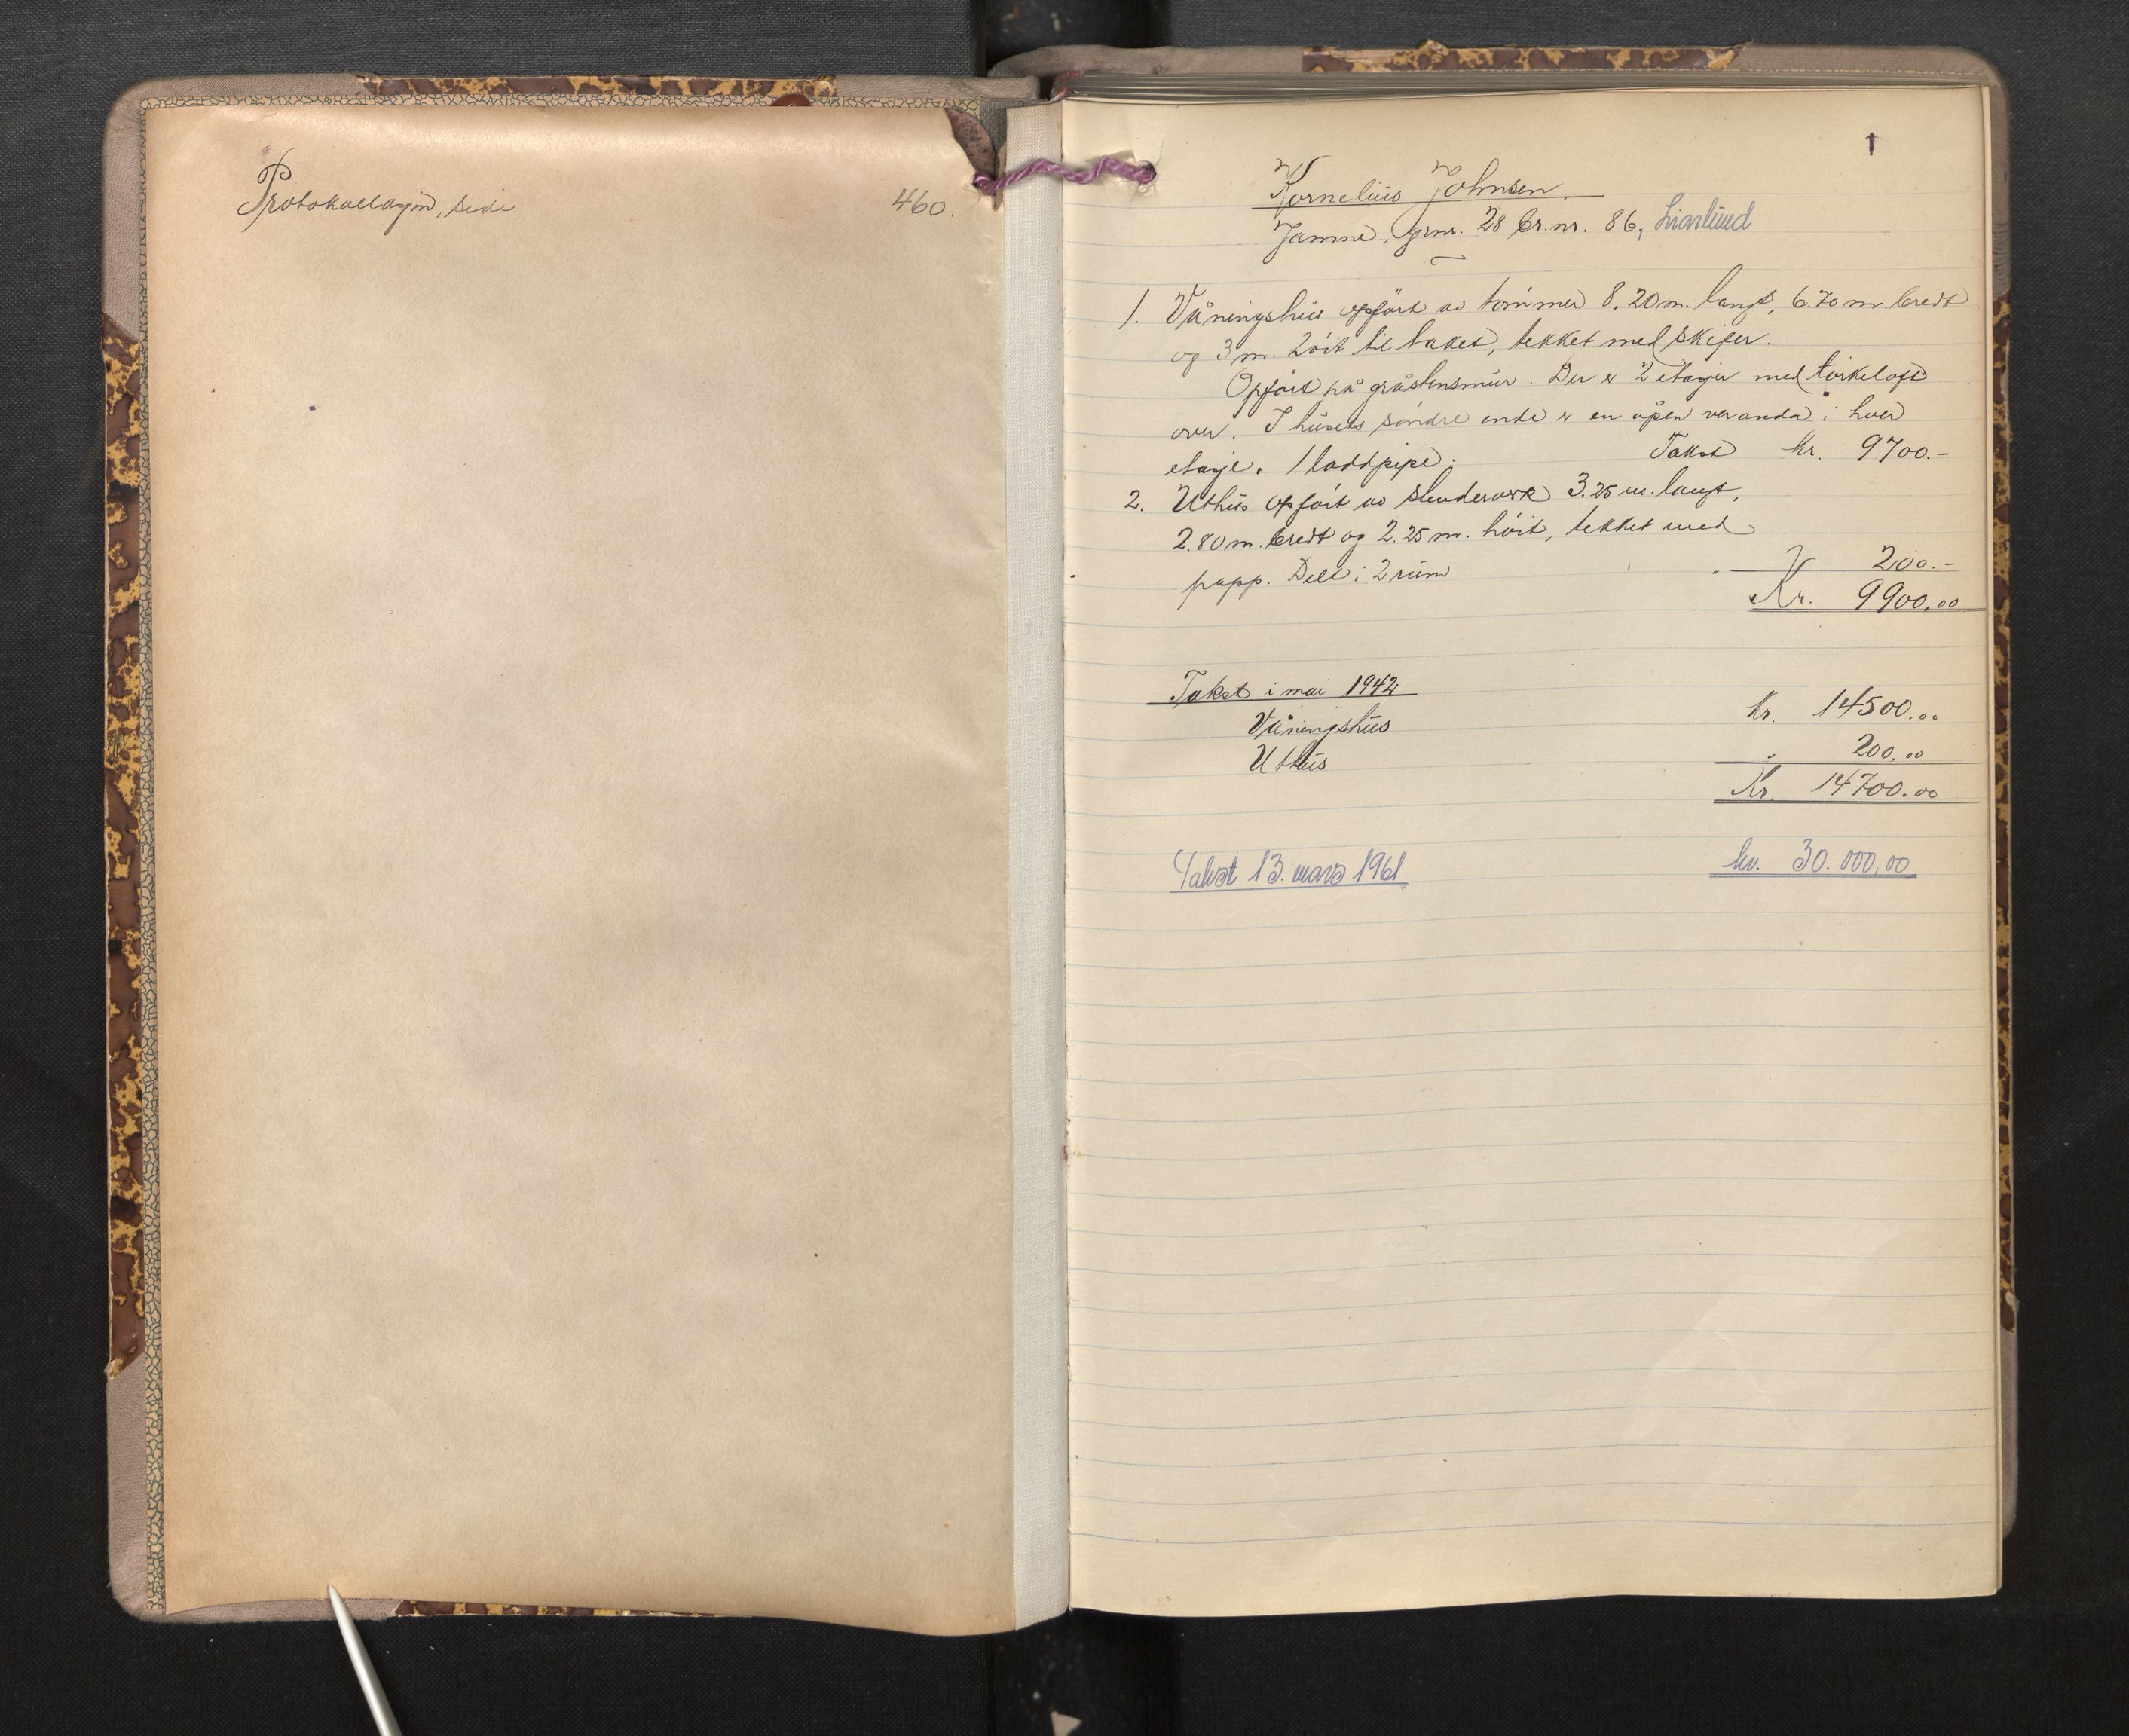 Protokollasjon, side 460.
1
Kornelius Johnsen.
Jamne, grnr. 28 br.nr. 86, Liarlund
1. Våningshus opfört av tömmer 8.20 m. langt, 6.70 m. bredt
og 3 m. höit til taket, tekket med skifer.
Opfört på gråstensmur. Der er 2 etagjer med törkeloft
over. I husets söndre ende er en åpen veranda i hver
etasje. 1 loddpipe. Takst kr. 9700.-
2. Uthus opfört av stenderverk 3.25 m. langt,
2.80 m. bredt og 2.25 m. höit, tekket med
papp. Delt i 2 rum 200.-
Kr. 9900.00
Takst i mai 1942
Våningshus kr. 14500.00
Uthus 200.00
Kr. 14700.00
Takst 13. mars 1961 kr. 30.000,00